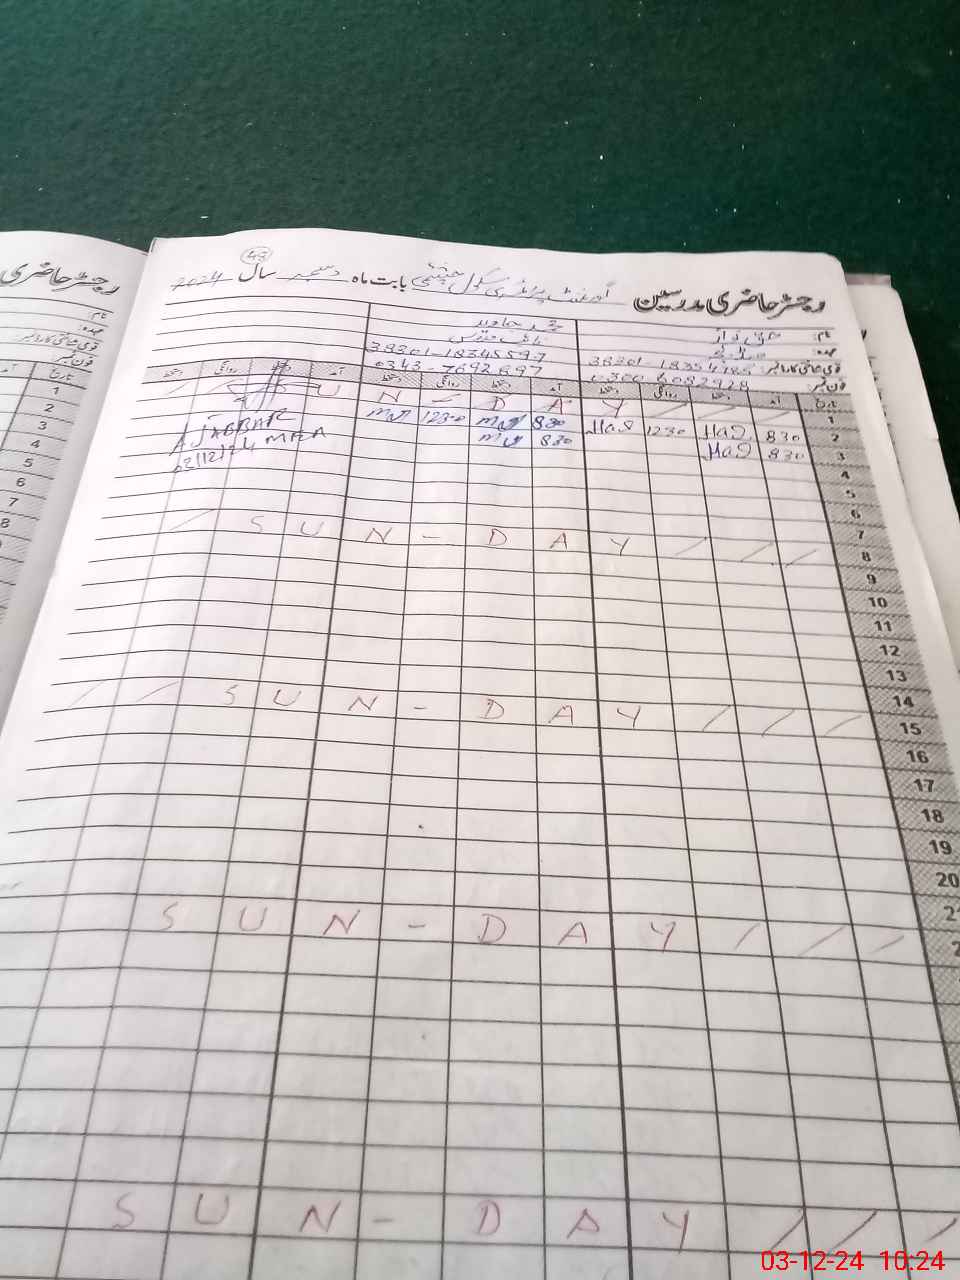 43
رجسٹر حاضری مدرسین گورنمنٹ پرائمری سکول بابت ماہ دسمبر سال 2024
نام:
محمد جاوید
عہدہ:
قومی شناختی کارڈ نمبر: 38301-18354786
38301-18345597
فون نمبر: 0300 6082928
0343-7692697
تاریخ آمد دستخط روانگی دستخط آمد دستخط روانگی دستخط آمد دستخط روانگی دستخط
1 S U N - D A Y
2 830 HaS 1230 HaS 830 1230
3 830 HaS 830
A JABBAR
MEA
02/12/24
4
5
6
7
8 S U N - D A Y
9
10
11
12
13
14
15 S U N - D A Y
16
17
18
19
20
21
S U N - D A Y
S U N - D A Y
رجسٹر حاضری
نام:
عہدہ:
قومی شناختی کارڈ نمبر
فون نمبر
تاریخ
1
2
3
4
5
6
7
8
03-12-24 10:24